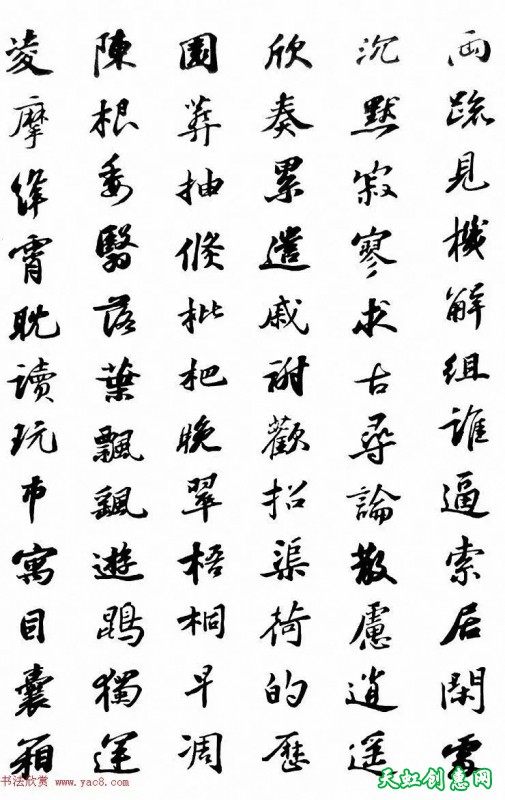 兩疏見機解組誰逼索居閑處
沉默寂寥求古尋論散慮逍遥
欣奏累遣戚謝歡招渠荷的歷
園莽抽條枇杷晚翠梧桐早凋
陳根委翳落葉飄颻遊鵾獨運
凌摩絳霄耽讀玩市寓目囊箱
书法欣赏 www.yac8.com
天虹创意网